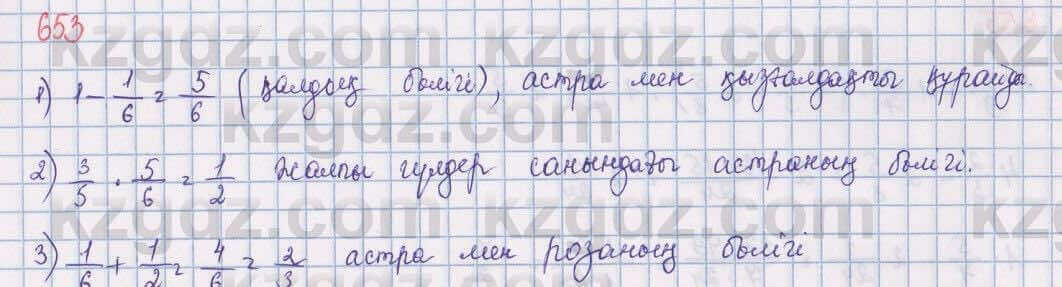 653
1) 1 - 1/6 = 5/6 (қалдық бөлігі), астра мен қызғалдақты құрайды.
2) 3/5 · 5/6 = 1/2 жалпы гүлдер санындағы астраның бөлігі.
3) 1/6 + 1/2 = 4/6 = 2/3 астра мен розаның бөлігі
kzgdz.com